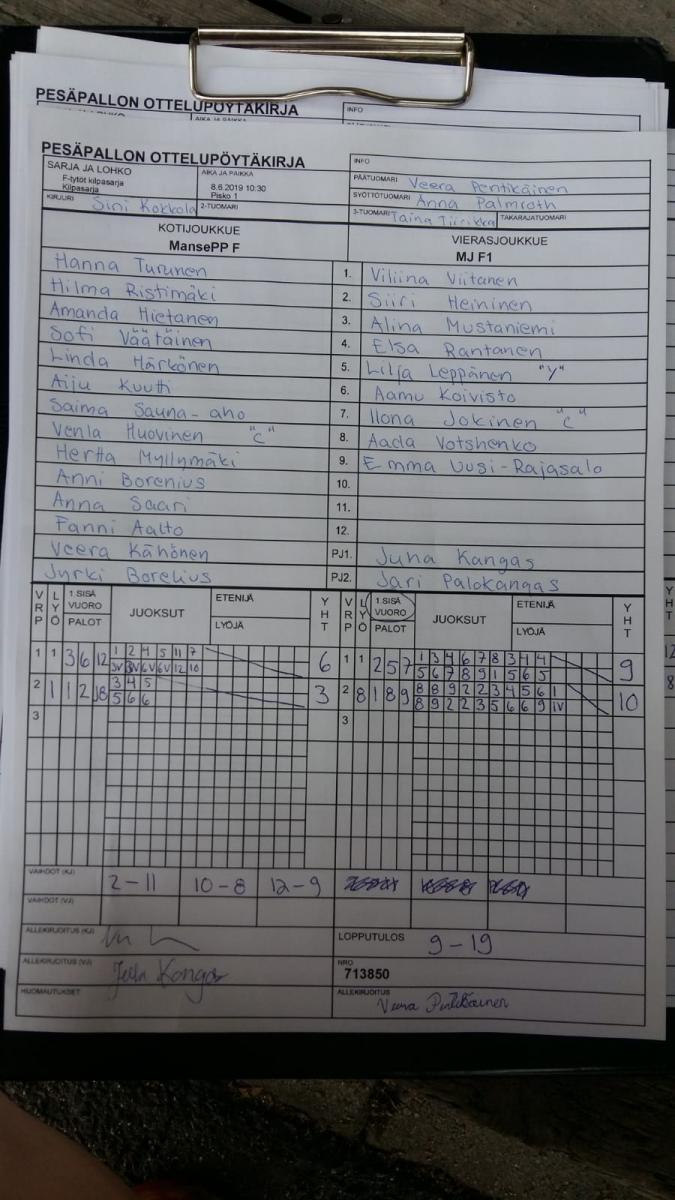 PESÄPALLON OTTELUPÖYTÄKIRJA
INFO
AIKA JA PAIKKA
PESÄPALLON OTTELUPÖYTÄKIRJA
INFO
SARJA JA LOHKO
F-tytöt kilpasarja
Kilpasarja
AIKA JA PAIKKA
8.6.2019 10:30
Pisko 1
PÄÄTUOMARI Veera Pentikäinen
SYÖTTÖTUOMARI Anna Palmroth
KIRJURI Sini Kokkola 2-TUOMARI
3-TUOMARI Taina Tiirikka TAKARAJATUOMARI
KOTIJOUKKUE
MansePP F
VIERASJOUKKUE
MJ F1
Hanna Turunen 1. Viliina Viitanen
Hilma Ristimäki 2. Siiri Heininen
Amanda Hietanen 3. Alina Mustaniemi
Sofi Väätäinen 4. Elsa Rantanen
Linda Härkönen 5. Lilja Leppänen "Y"
Aiju Kuutti 6. Aamu Koivisto
Saima Sauna-aho 7. Ilona Jokinen "C"
Venla Huovinen "C" 8. Aada Votshenko
Hertta Myllymäki 9. Emma Uusi-Rajasalo
Anni Borenius 10.
Anna Saari 11.
Fanni Aalto 12.
Veera Kähönen PJ1. Juha Kangas
Jyrki Borelius PJ2. Jari Palokangas
VRP LYÖ 1.SISÄ VUORO PALOT JUOKSUT ETENIJÄ LYÖJÄ YHT VRP LYÖ 1.SISÄ VUORO PALOT JUOKSUT ETENIJÄ LYÖJÄ YHT
1 1 3 6 12 1 2 4 5 11 7 6 1 1 2 5 7 1 3 4 6 7 8 3 4 4 9
3V 3V 6V 6V 12 10 5 6 7 8 9 1 5 6 5
2 1 1 2 J8 3 4 5 3 2 8 1 8 9 8 8 9 2 2 3 4 5 6 1 10
5 6 6 8 9 2 2 3 5 6 6 9 1V
3 3
VAIHDOT (KJ) 2-11 10-8 12-9
VAIHDOT (VJ)
ALLEKIRJOITUS (KJ)
LOPPUTULOS 9-19
ALLEKIRJOITUS (VJ) Juha Kangas
NRO
713850
HUOMAUTUKSET
ALLEKIRJOITUS
Veera Pentikäinen